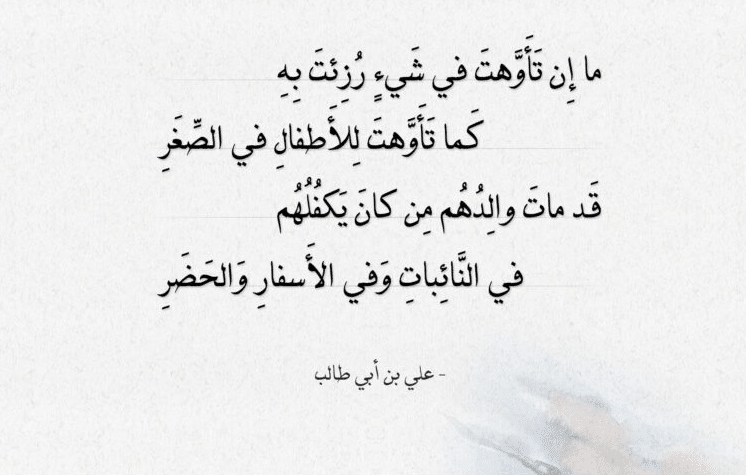 ما إِن تَأَوَّهتَ في شَيءٍ رُزِئتَ بِهِ
كَما تَأَوَّهتَ لِلأَطفالِ في الصِّغَرِ
قَد ماتَ والِدُهُم مِن كانَ يَكفُلُهُم
في النَّائِباتِ وَفي الأَسفارِ وَالحَضَرِ
- علي بن أبي طالب